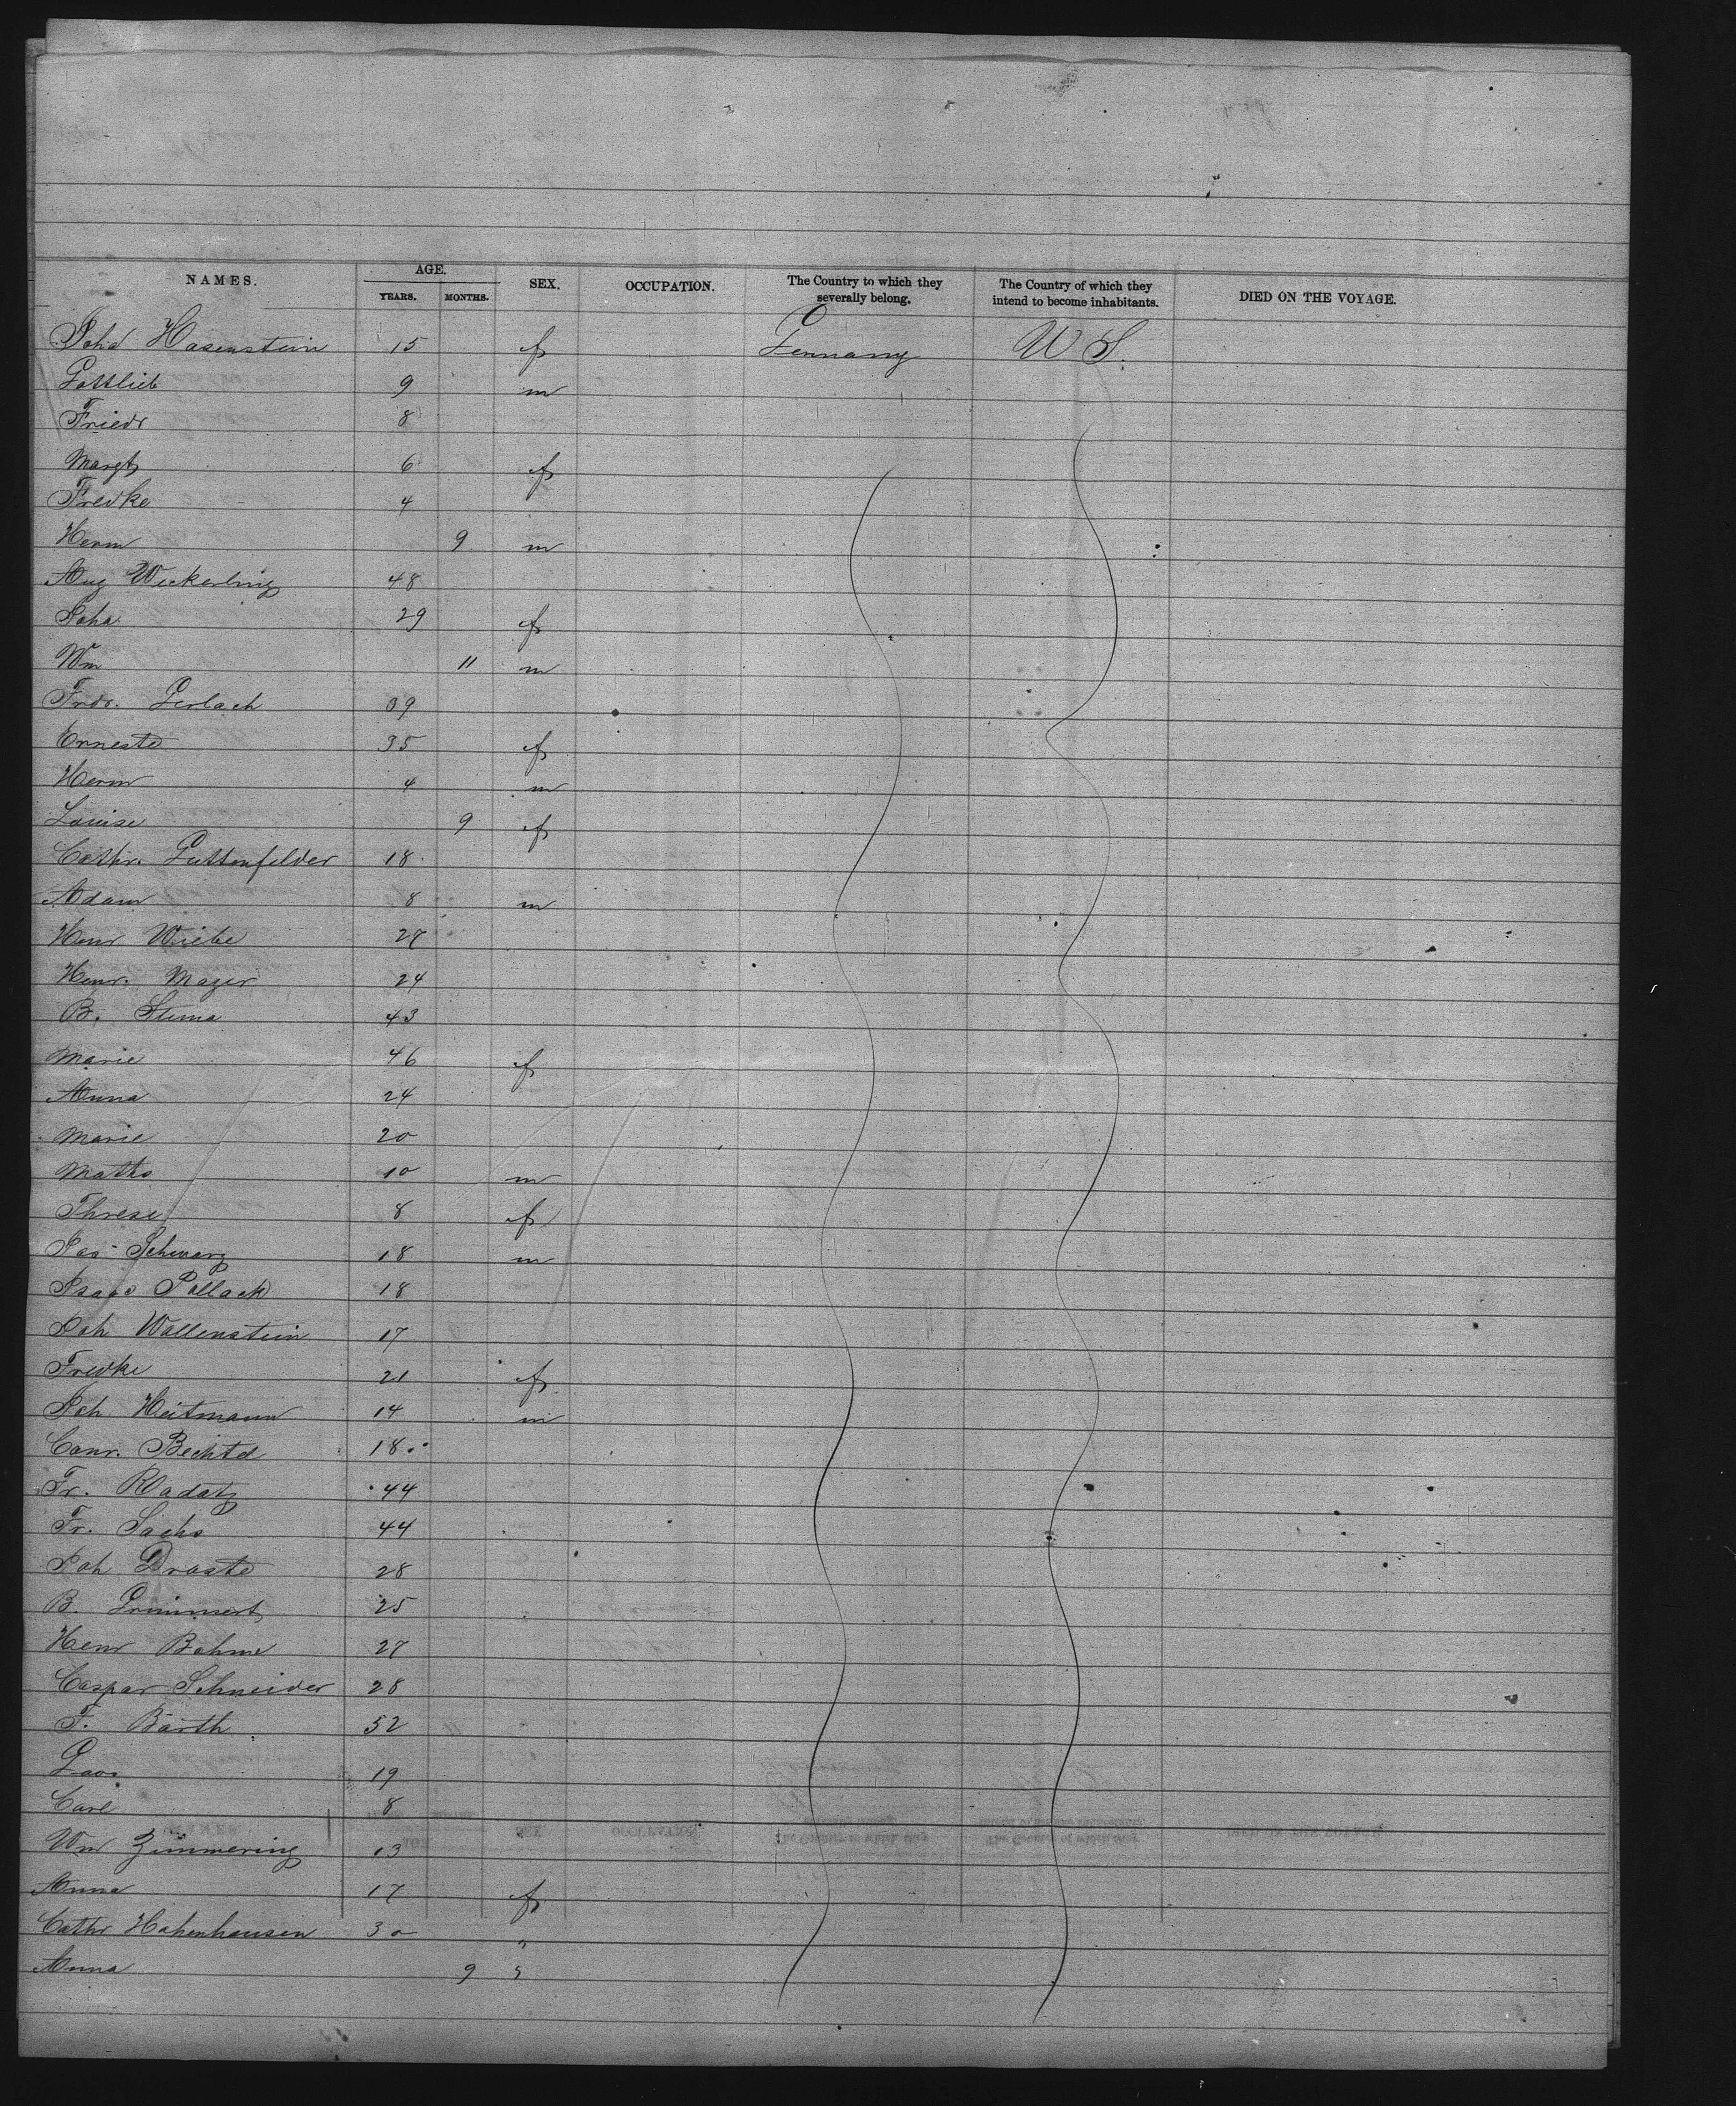 NAMES. AGE. SEX. OCCUPATION. The Country to which they severally belong. The Country of which they intend to become inhabitants. DIED ON THE VOYAGE.
YEARS. MONTHS.
Joha Hasenstein 15 f Germany U S.
Gottlieb 9 m
Friedr 8
Margt 6 f
Fredke 4
Herm 9 m
Aug Weckerling 48
Joha 29 f
Wm 11 m
Frdr. Gerlach 39
Erneste 35 f
Herm 4 m
Louise 9 f
Cathr. Guttenfelder 18
Adam 8 m
Henr Wiebe 28
Henr. Mayer 24
B. Stuma 43
Marie 46 f
Anna 24
Marie 20
Maths 10 m
Threse 8 f
Jas Schwarz 18 m
Isaac Pollack 18
Joh Wallenstein 17
Fredke 21 f
Joh Heitmann 14 m
Conr. Bechtel 18
Fr. Radatz 44
Fr. Sachs 44
Joh Draste 28
B. Grimmert 25
Henr Bohme 27
Caspar Schneider 28
F. Barth 52
19
Carl 8
Wm Zimmering 13
Anna 17 f
Cathr Hohenhausen 30 "
Anna 9 "